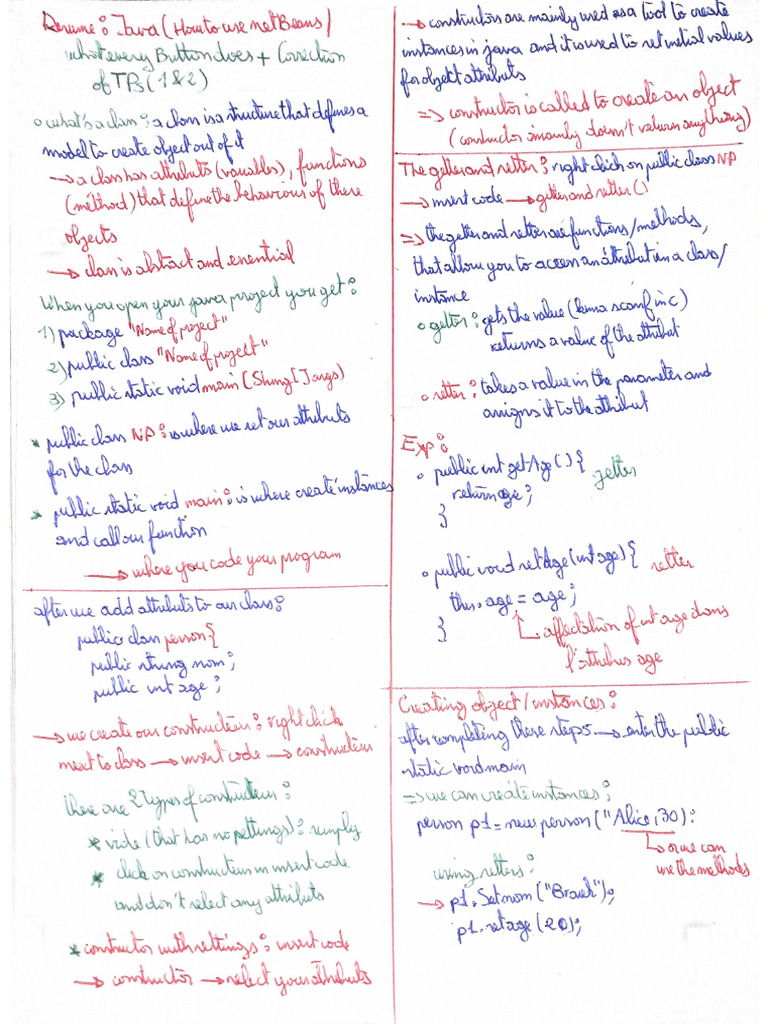 Resume : Java (How to use netBeans)
what every Button does + Correction
of TP3 (1 & 2)
o what's a class : a class is a structure that defines a
model to create object out of it
→ a class has attributs (variables), functions
(méthod) that define the behaviour of these
objects
→ class is abstract and essential
When you open your java project you get :
1) package "Name of project"
2) public class "Name of project"
3) public static void main (String [] args)
* public class NP : is where we set our attributs
for the class
* public static void main : is where create instances
and call our function
→ where you code your program
after we add attributs to our class :
public class person {
public string nom ;
public int age ;
→ we create our constructeur : right click
next to class → insert code → constructeur
there are 2 types of constructeur :
* vide (that has no settings) : simply
* click on constructeur in insert code
and don't select any attributs
* constructor with settings : insert code
→ constructor → select your attributs
→ constructors are mainly used as a tool to create
instances in java and it is used to set initial values
for object attributs
=> constructor is called to create an object
(constructor mainly doesn't return anything)
The getter and setter : right click on public class NP
→ insert code → getter and setter ()
=> the getter and setter are functions/methods,
that allow you to access an attribut in a class/
instance
o getter : gets the value (kima scanf in c)
returns a value of the attribut
o setter : takes a value in the parameter and
assigns it to the attribut
Exp :
o public int getAge () {
getter
return age ;
}
o public void setAge (int age) {
setter
this. age = age ;
affectation of int age dans
}
l'attribus age
Creating object / instances :
after completing these steps → enter the public
static void main
=> we can create instances ;
person p1 = new person ("Alice, 30) :
→ or we can
use the methods
using setters :
→ p1. Setnom ("Brank");
p1. setage (20);